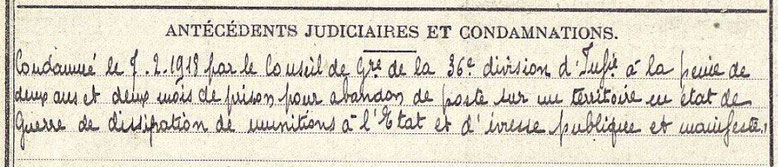 ANTÉCÉDENTS JUDICIAIRES ET CONDAMNATIONS.
Condamné le 7.2.1918 par le Conseil de Gre de la 36e division d'Infie à la peine de
deux ans et deux mois de prison pour abandon de poste sur un territoire en état de
Guerre de dissipation de munitions à l'Etat et d'ivresse publique et manifeste.